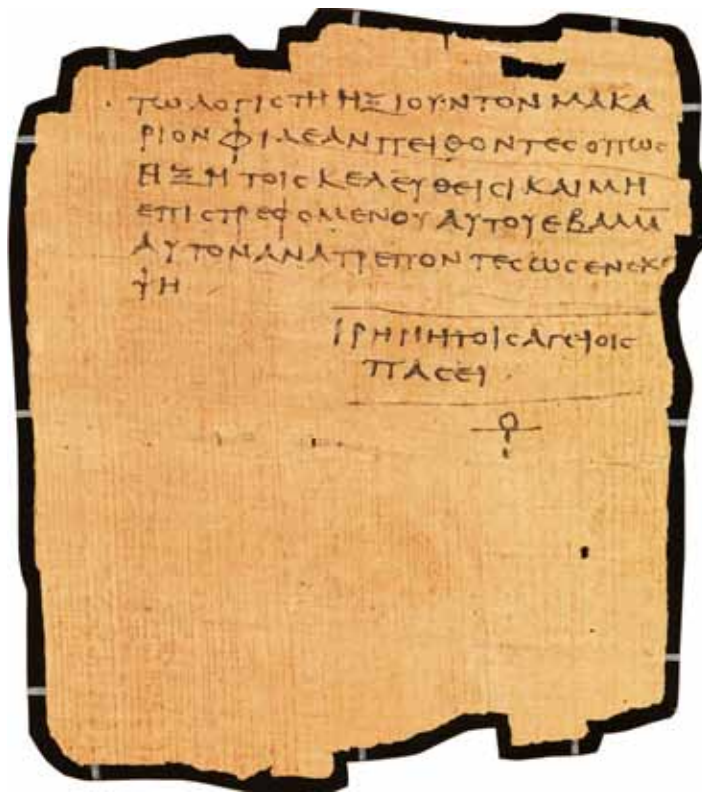 ΤΩΛΟΓΙϹΤΗΗΞΙΟΥΝΤΟΝΜΑΚΑ
ΡΙΟΝΦΙΛΕΑΝΠΕΙΘΟΝΤΕϹΟΠΩϹ
ΕΙΞΗΤΟΙϹΚΕΛΕΥΘΕΙϹΙΚΑΙΜΗ
ΕΠΙϹΤΡΕΦΟΜΕΝΟΥΑΥΤΟΥΕΒΑΛΛΑ
ΑΥΤΟΝΑΝΑΤΡΕΠΟΝΤΕϹΩϹ
ΨΗ
ΙΡΗΝΗΤΟΙϹΑΓΕΙΟΙϹ
ΠΑϹΕΙ